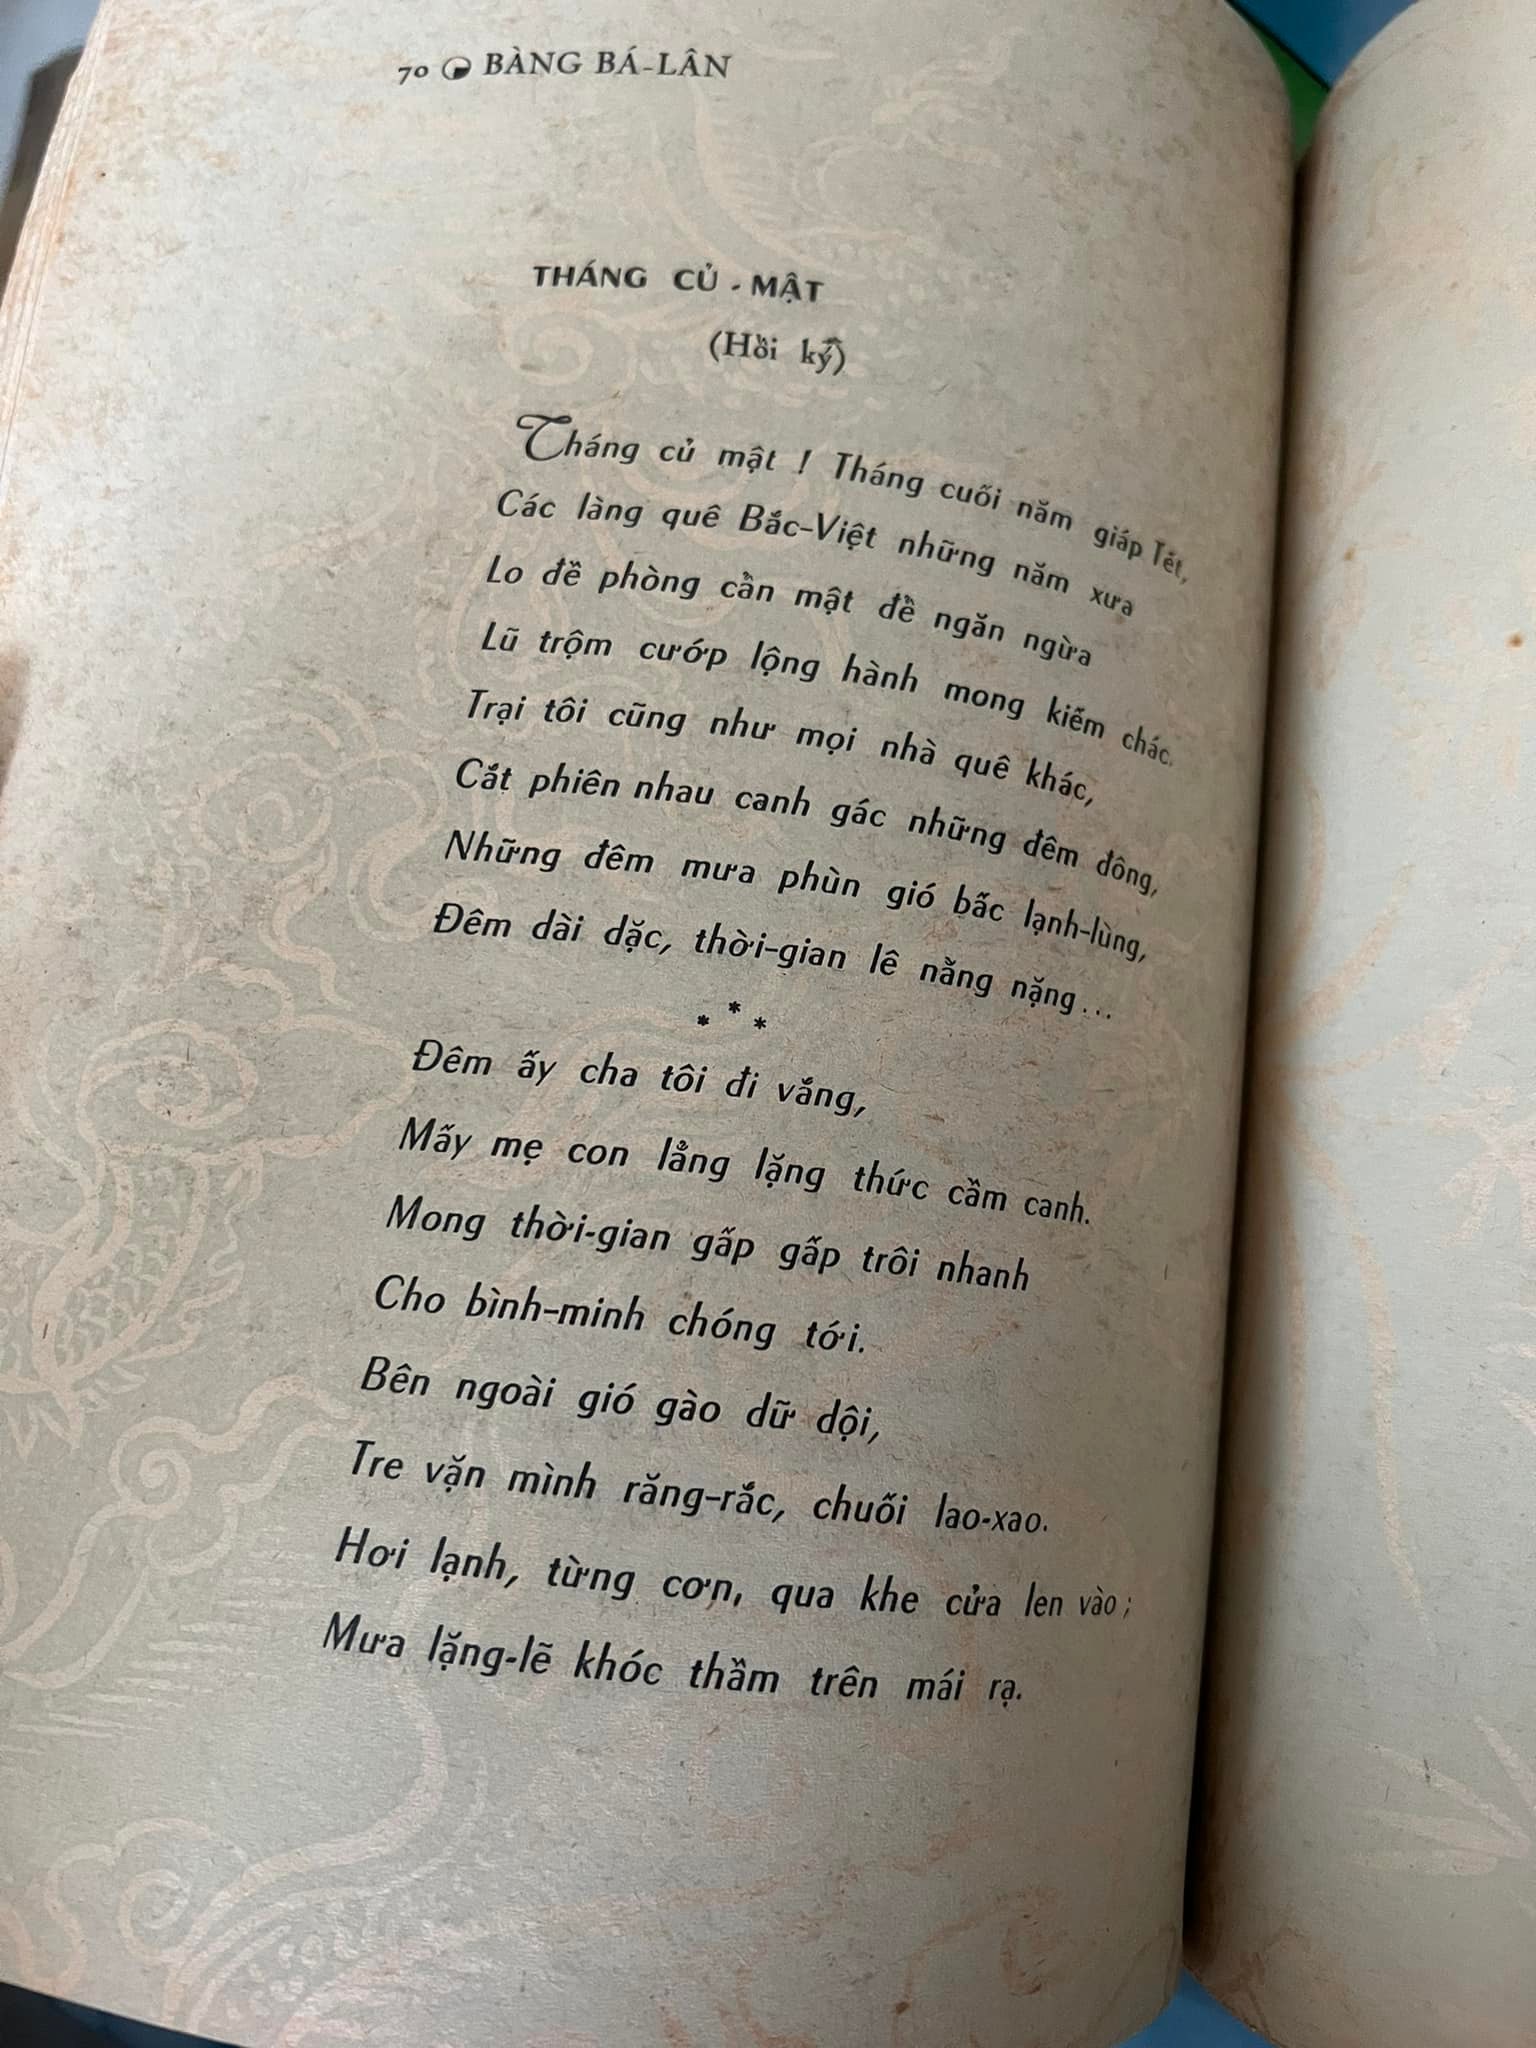 70 BÀNG BÁ-LÂN
THÁNG CỦ-MẬT
(Hồi ký)
Tháng củ mật ! Tháng cuối năm giáp Tết,
Các làng quê Bắc-Việt những năm xưa
Lo đề phòng cẩn mật để ngăn ngừa
Lũ trộm cướp lộng hành mong kiếm chác.
Trại tôi cũng như mọi nhà quê khác,
Cắt phiên nhau canh gác những đêm đông,
Những đêm mưa phùn gió bấc lạnh-lùng,
Đêm dài dặc, thời-gian lê nằng nặng...
* * *
Đêm ấy cha tôi đi vắng,
Mấy mẹ con lẳng lặng thức cầm canh.
Mong thời-gian gấp gấp trôi nhanh
Cho bình-minh chóng tới.
Bên ngoài gió gào dữ dội,
Tre vặn mình răng-rắc, chuối lao-xao.
Hơi lạnh, từng cơn, qua khe cửa len vào ;
Mưa lặng-lẽ khóc thầm trên mái rạ.